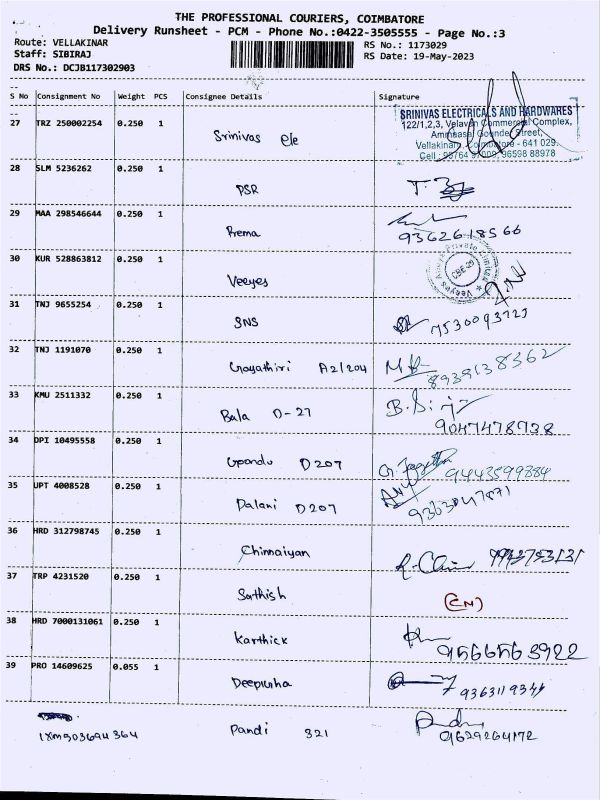 THE PROFESSIONAL COURIERS, COIMBATORE
Delivery Runsheet - PCM - Phone No.:0422-3505555 - Page No.:3
Route: VELLAKINAR
RS No.: 1173029
Staff: SIBIRAJ
RS Date: 19-May-2023
DRS No.: DCJB117302903
S No Consignment No Weight PCS Consignee Details Signature
27 TRZ 250002254 0.250 1 Srinivas ele
SRINIVAS ELECTRICALS AND HARDWARES
122/1,2,3, Velavan Commercial Complex,
Street,
Vellakinar, Coimbatore - 641 029.
Cell : 96598 88978
28 SLM 5236262 0.250 1 PSR
29 MAA 298546644 0.250 1 Prema 9362618566
30 KUR 528863812 0.250 1 Veeyes
CBE-29
31 TNJ 9655254 0.250 1 SNS
32 TNJ 1191070 0.250 1 Gayathiri A2/204 8939138362
33 KMU 2511332 0.250 1 Bala D-27 9047478738
34 DPI 10495558 0.250 1 D207 9443599884
35 UPT 4008528 0.250 1 Palani D207
36 HRD 312798745 0.250 1 Chinnaiyan
37 TRP 4231520 0.250 1 Sathish
38 HRD 7000131061 0.250 1 Karthick 9566563922
39 PRO 14609625 0.055 1
Pandi 321 9629264172